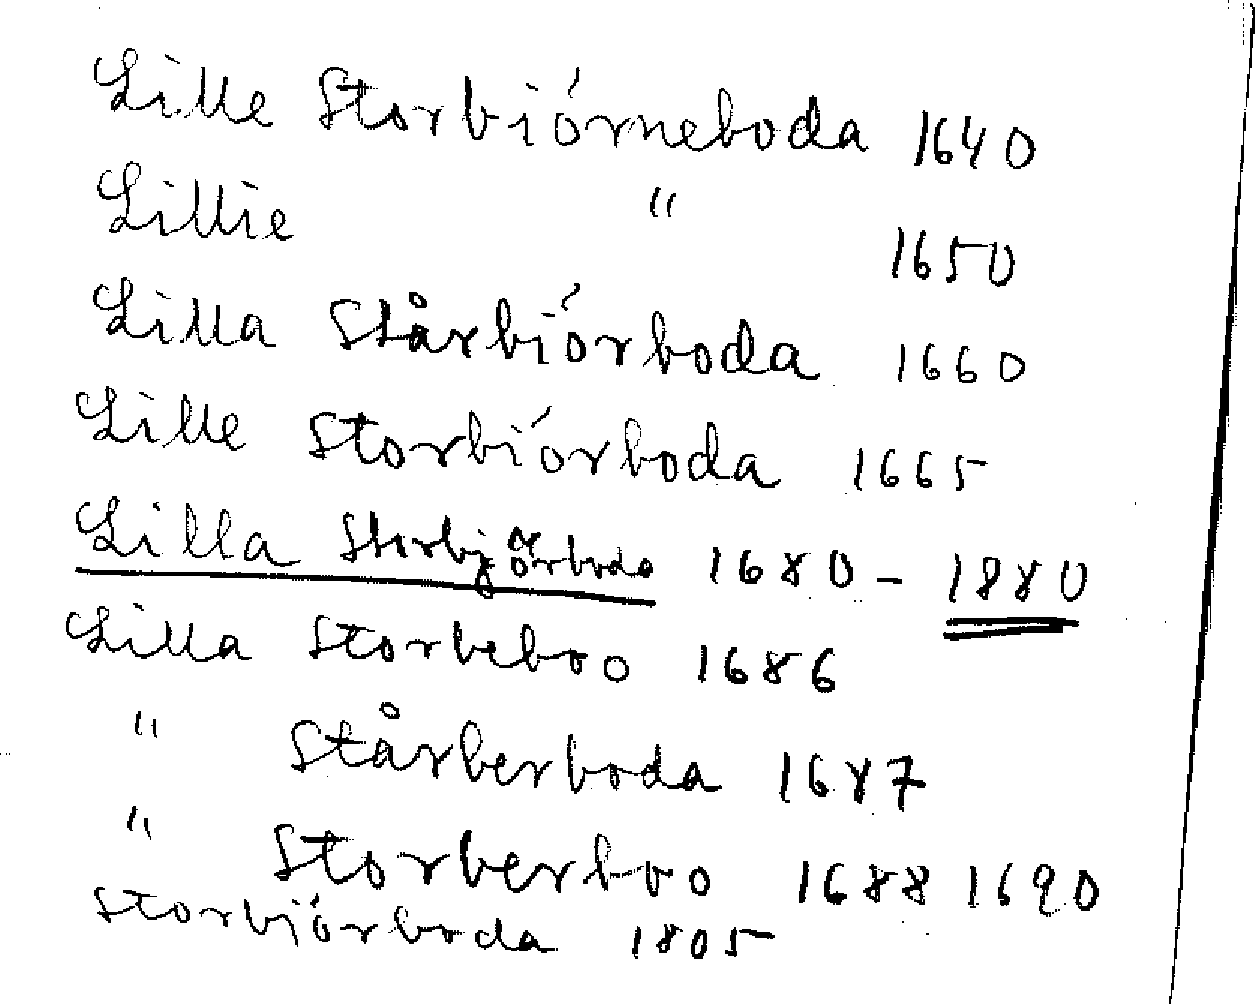 Lille Storbiórneboda 1640
Lillie " 1650
Lilla Stårbiórboda 1660
Lille Storbiórboda 1665
Lilla Storbjörboda 1680 - 1880
Lilla Storbeboo 1686
" Stårberboda 1687
" Storberboo 1688 1690
Storbjörboda 1805